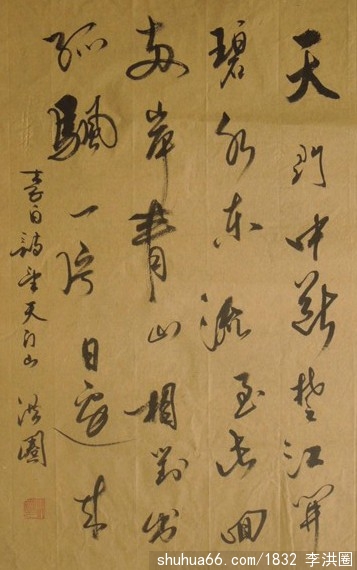 天門中斷楚江開
碧水東流至此回
兩岸青山相對出
孤颿一片日邊來
李白詩望天门山 洪圈
shuhua66.com/1832 李洪圈